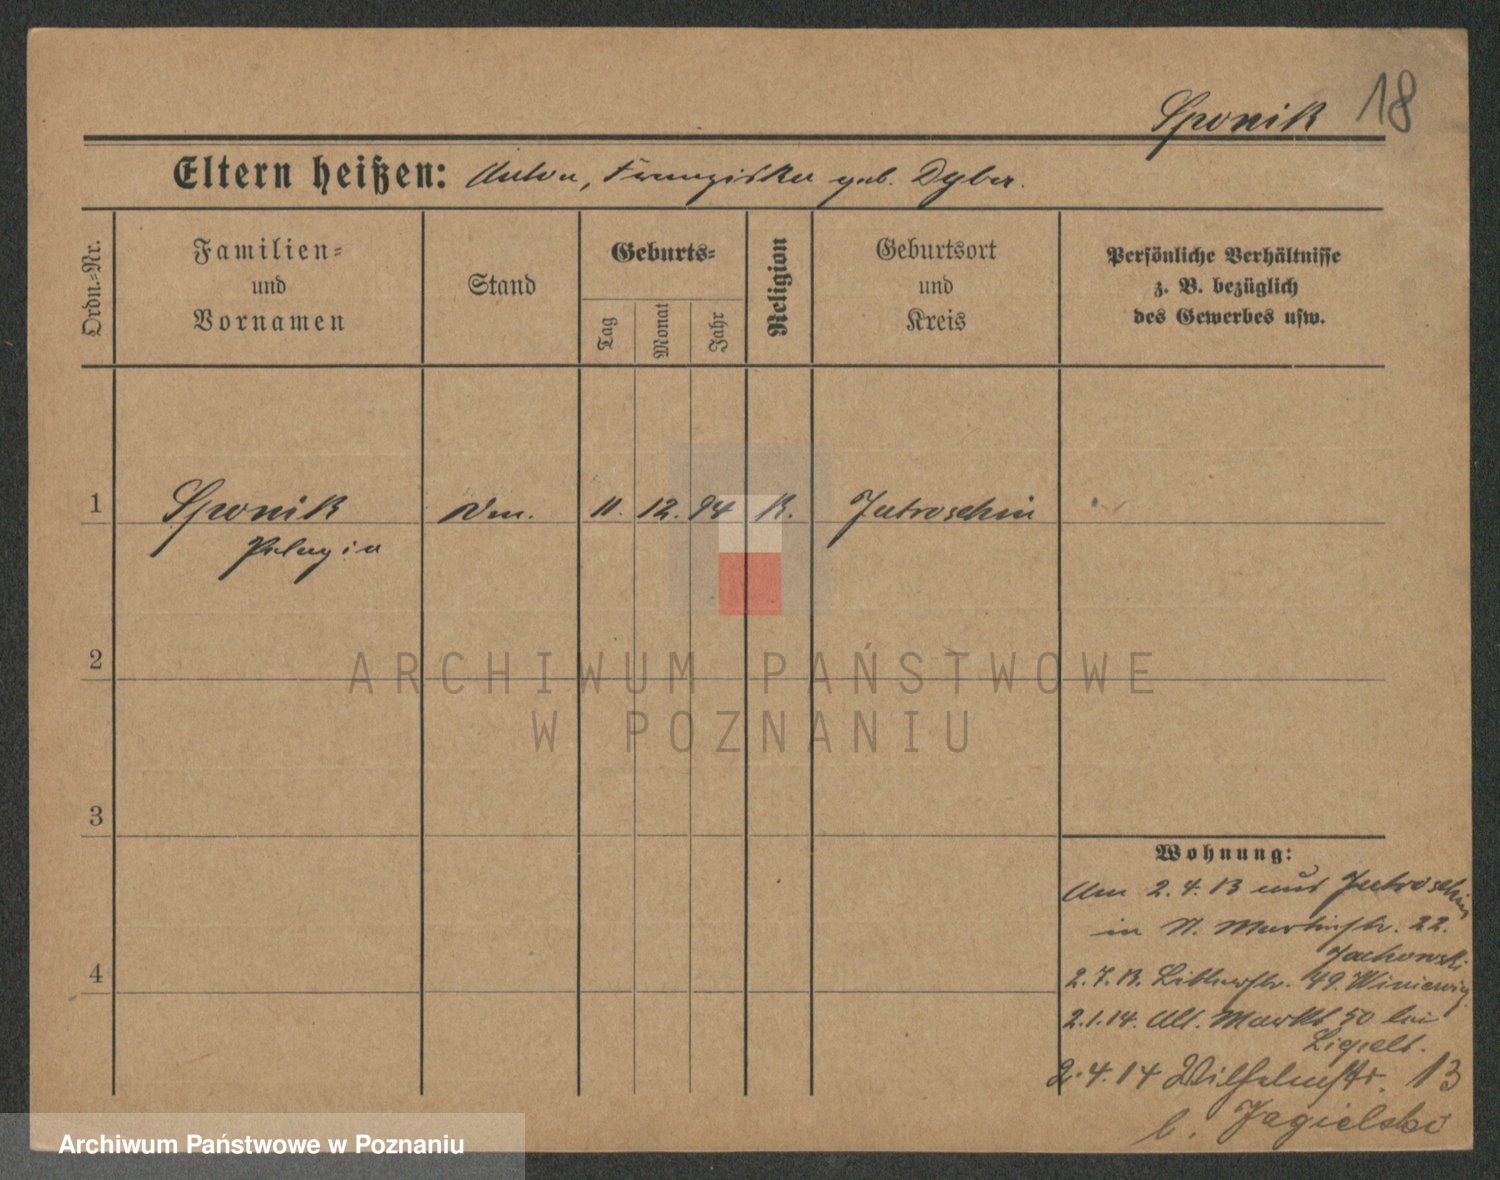 Sponik 18
Eltern heißen: Anton, Franziska geb. Dyba.
Ordn.-Nr.
Familien-
und
Vornamen
Stand
Geburts-
Tag
Monat
Jahr
Religion
Geburtsort
und
Kreis
Persönliche Verhältnisse
z. B. bezüglich
des Gewerbes usw.
1 Sponik 11. 12. 94 K. Jutroschin
Pelagia
2
3
4
Wohnung:
Am 2.4.13 aus Jutroschin
in St. Martinstr. 22.
Jachowski
2.7.13. 49.
2.1.14. Alt. Markt 50 bei
2.4.14 Wilhelmstr. 13
b. Jagielski
ARCHIWUM PAŃSTWOWE
W POZNANIU
Archiwum Państwowe w Poznaniu